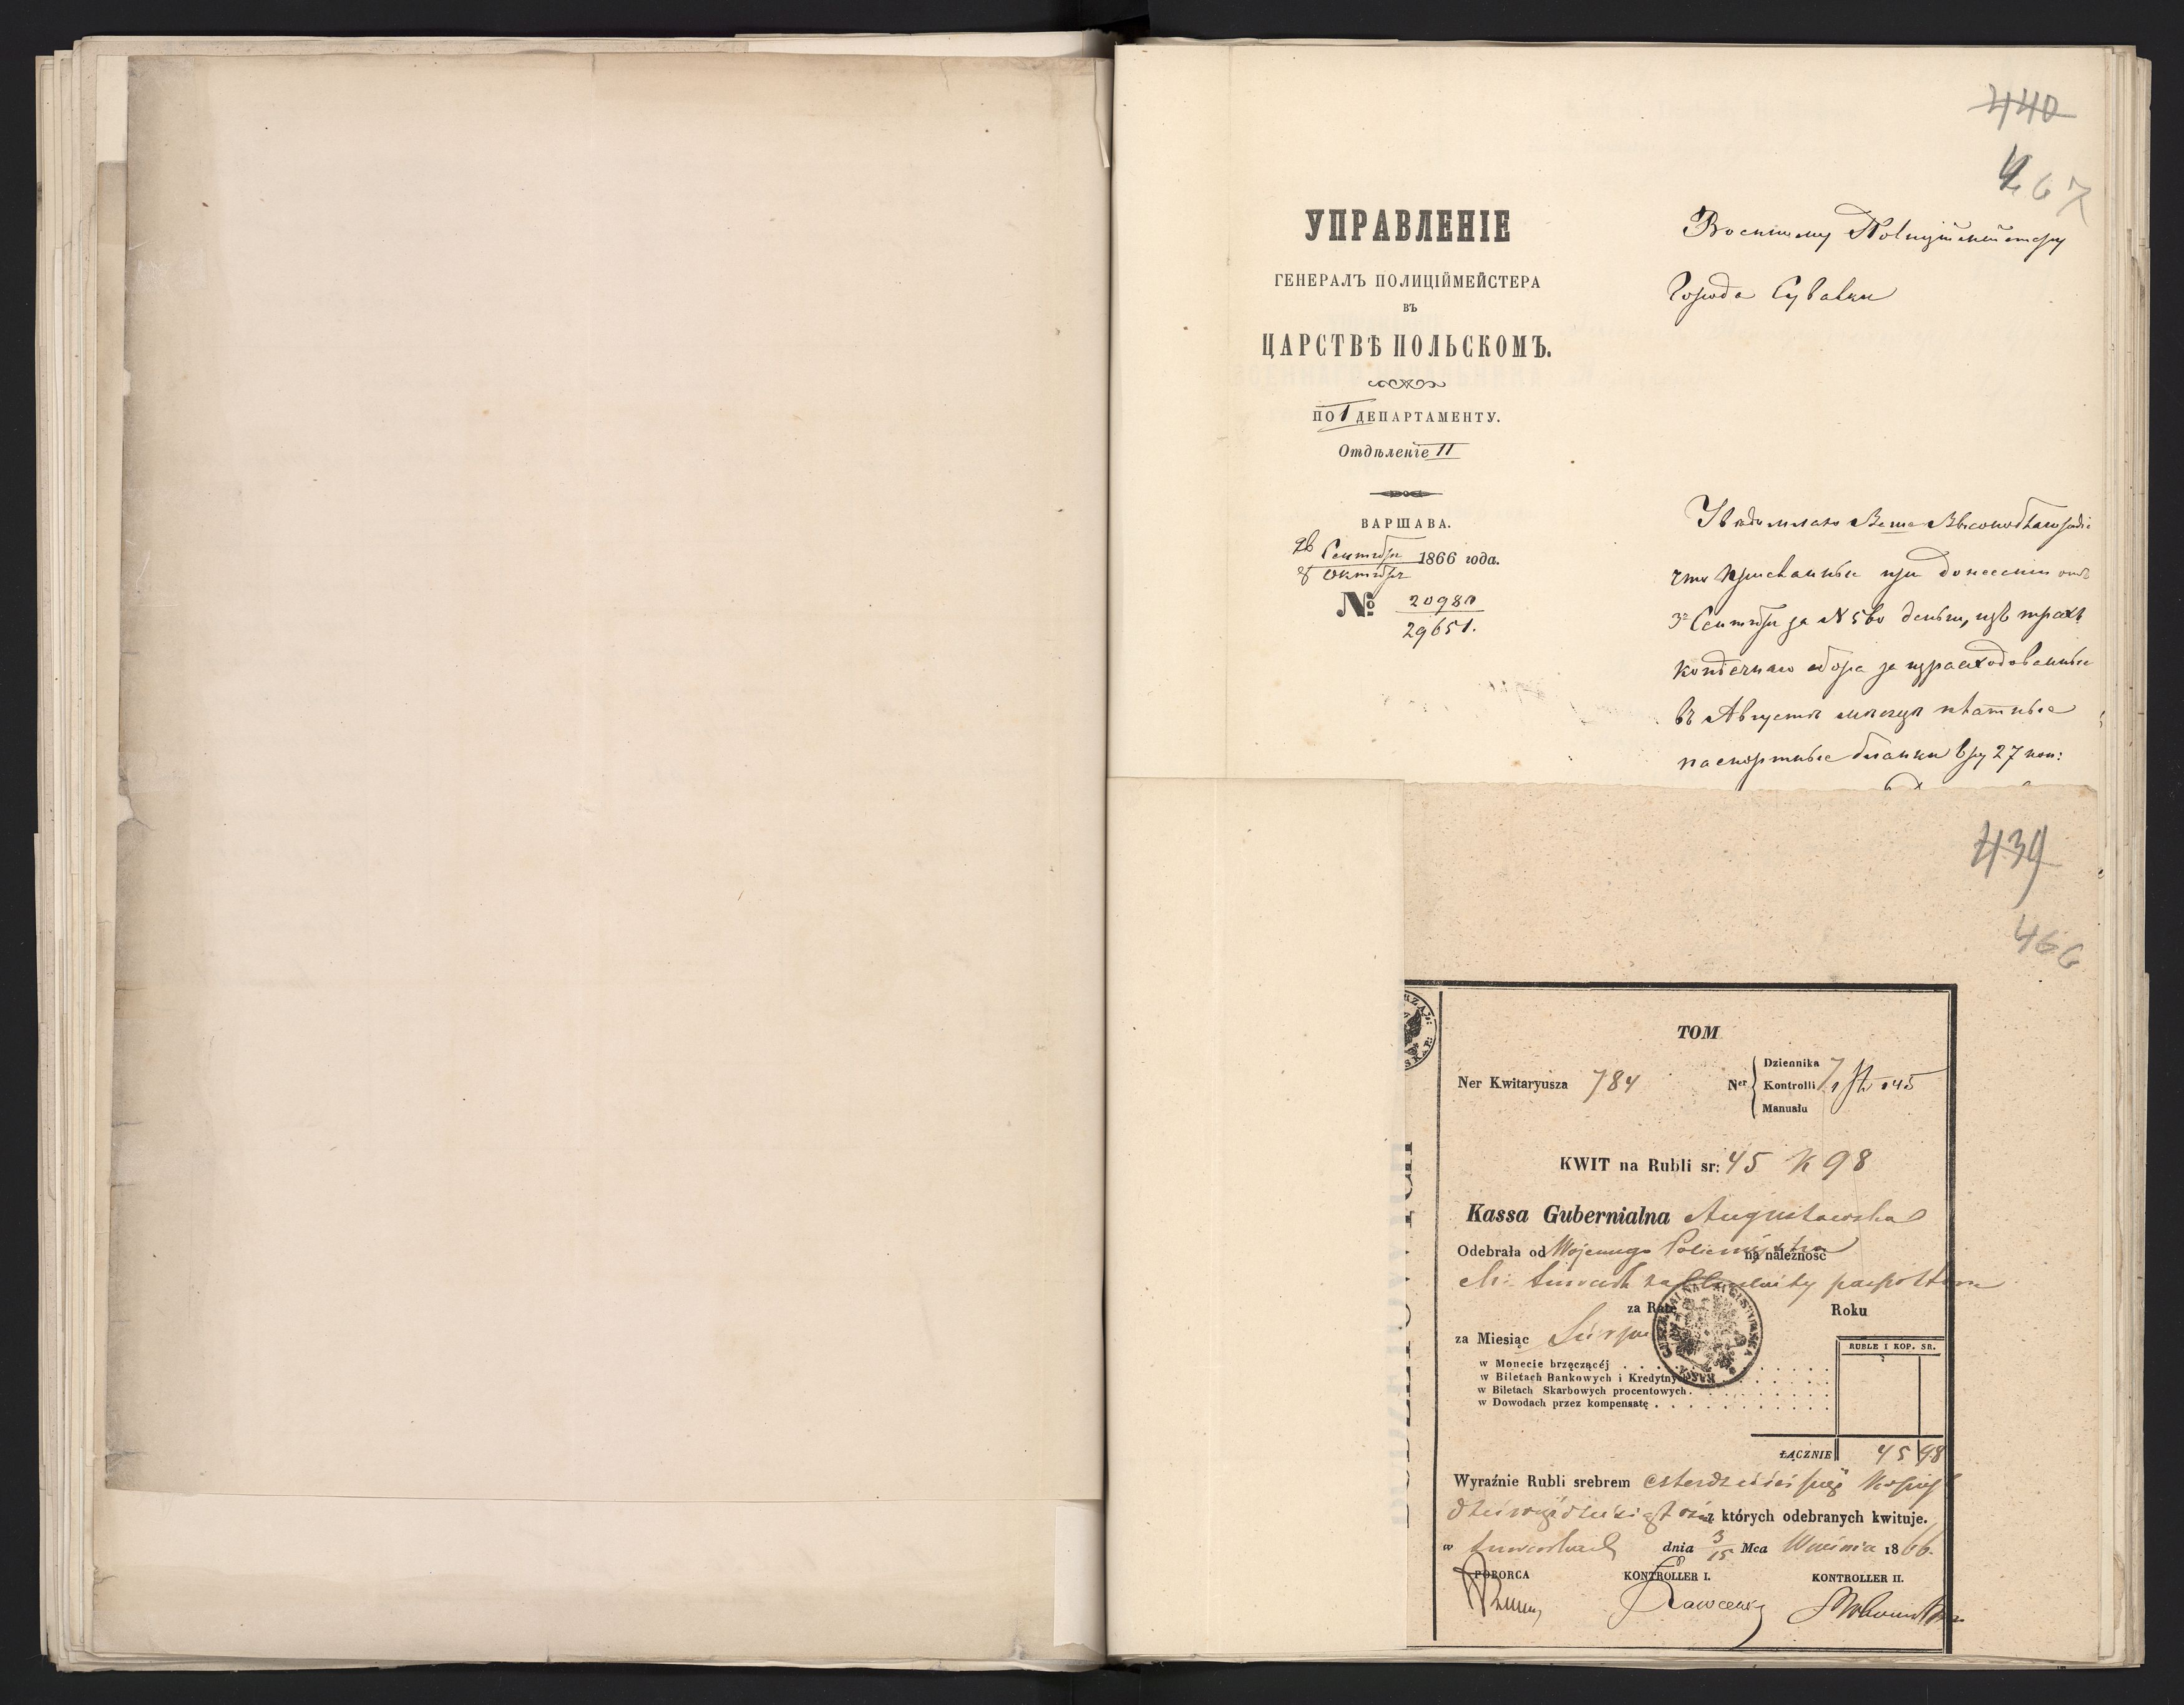 440
467
УПРАВЛЕНІЕ
ГЕНЕРАЛЪ ПОЛИЦІЙМЕЙСТЕРА
ВЪ
ЦАРСТВѢ ПОЛЬСКОМЪ.
ПО I ДЕПАРТАМЕНТУ.
Отдѣленіе II
ВАРШАВА.
26 Сентября
8 Октября 1866 года.
№ 20980
29651.
Военному Полиціймейстеру
Города Сувалки
Увѣдомляю Ваше Высокоблагородіе
что присланные при донесеніи отъ
3 Сентября за № 560 деньги, изъ трехъ
копѣечнаго сбора за израсходованные
въ Августѣ мѣсяцѣ платные
паспортные бланки 27 коп:
439
466
TOM
Ner Kwitaryusza 784
Ner Dziennika
Kontrolli
Manuału
145
KWIT na Rubli sr: 45 K 98
Kassa Gubernialna Augustowska
Odebrała od Wojennego Policmajstra na należność
M. Suwałk za paszportowe
za Ratę Roku
za Miesiąc Sierpień
RUBLE I KOP. SR.
w Monecie brzęczącéj
w Biletach Bankowych i Kredytny
w Biletach Skarbowych procentowych
w Dowodach przez kompensatę
ŁĄCZNIE 45 98
Wyraźnie Rubli srebrem czterdzieści pięć kopiejek
dziewięćdziesiąt ośm z których odebranych kwituje.
w Suwałkach dnia 3/15 Mca Września 1866.
POBORCA KONTROLLER I. KONTROLLER II.